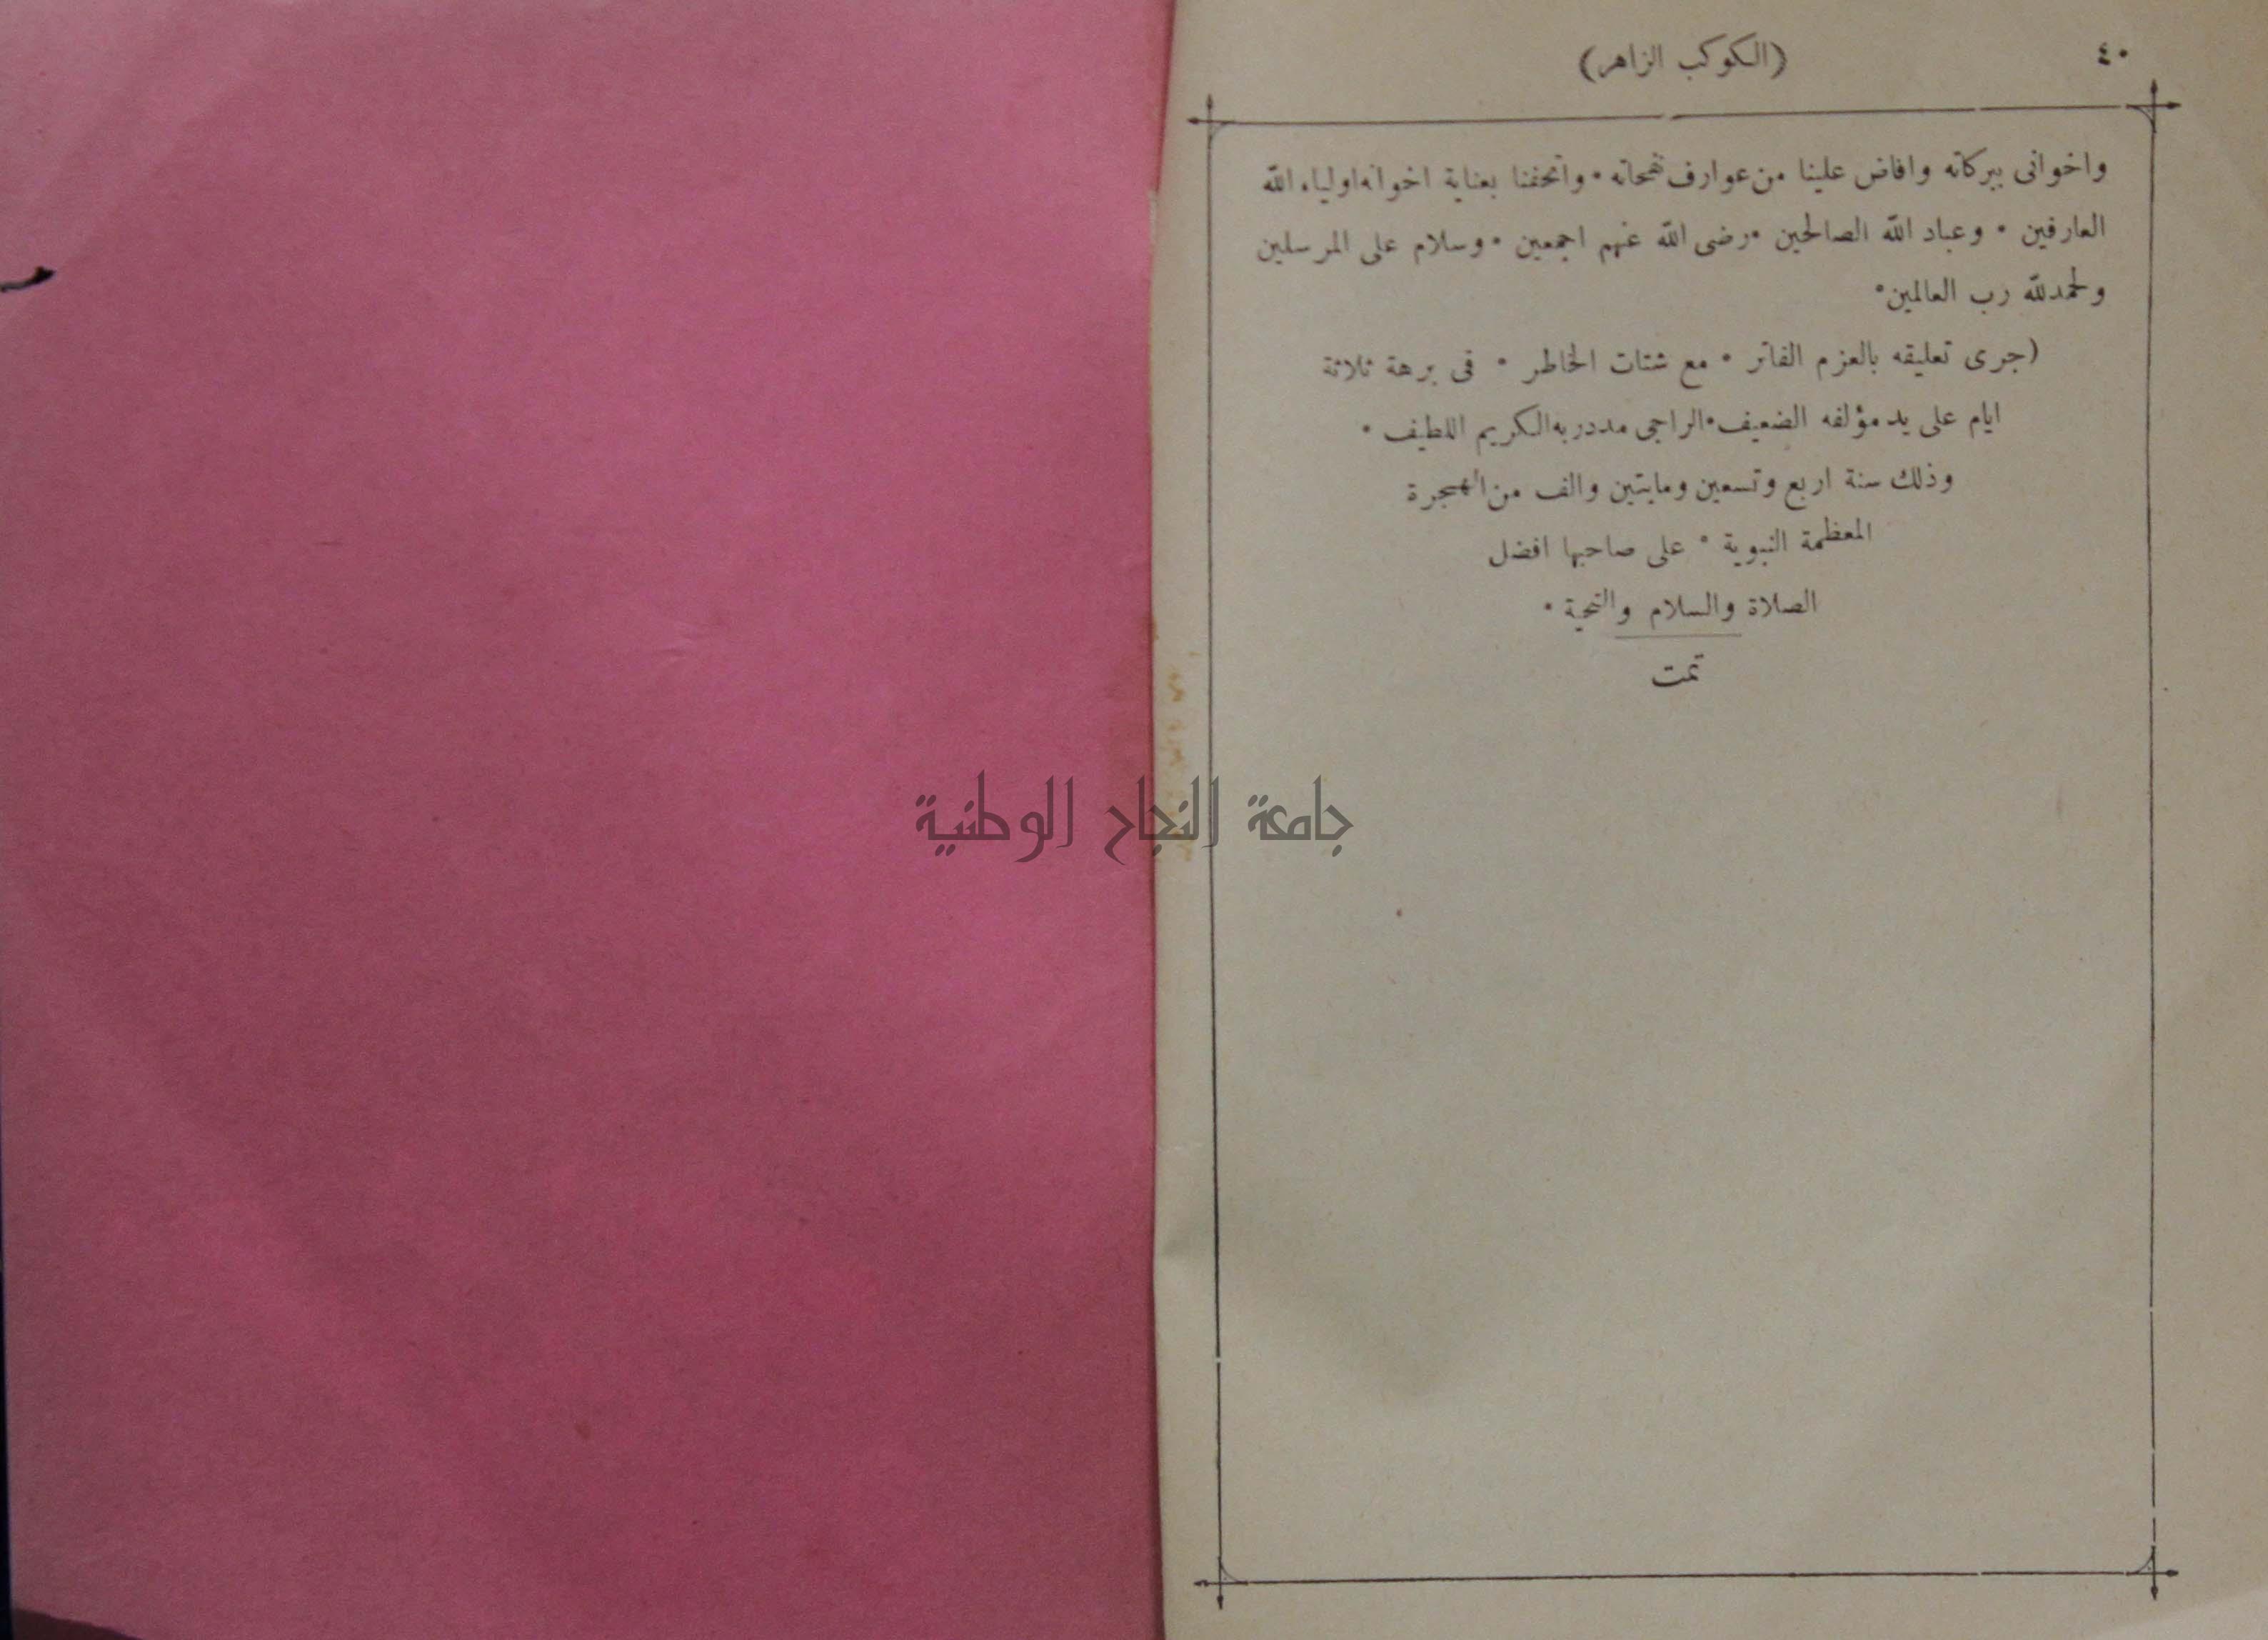 ٤٠
(الكوكب الزاهر)
واخوانى ببركاته وافاض علينا من عوارف نفحاته • واتحفنا بعناية اخوانه اولياء الله
العارفين • وعباد الله الصالحين • رضى الله عنهم اجمعين • وسلام على المرسلين
ولحمد لله رب العالمين •
(جرى تعليقه بالعزم الفاتر • مع شتات الخاطر • فى برهة ثلاثة
ايام على يد مؤلفه الضعيف • الراجى مدد ربه الكريم اللطيف •
وذلك سنة اربع وتسعين ومايتين والف من الهجرة
المعظمة النبوية • على صاحبها افضل
الصلاة والسلام والتحية •
تمت
جامعة النجاح الوطنية